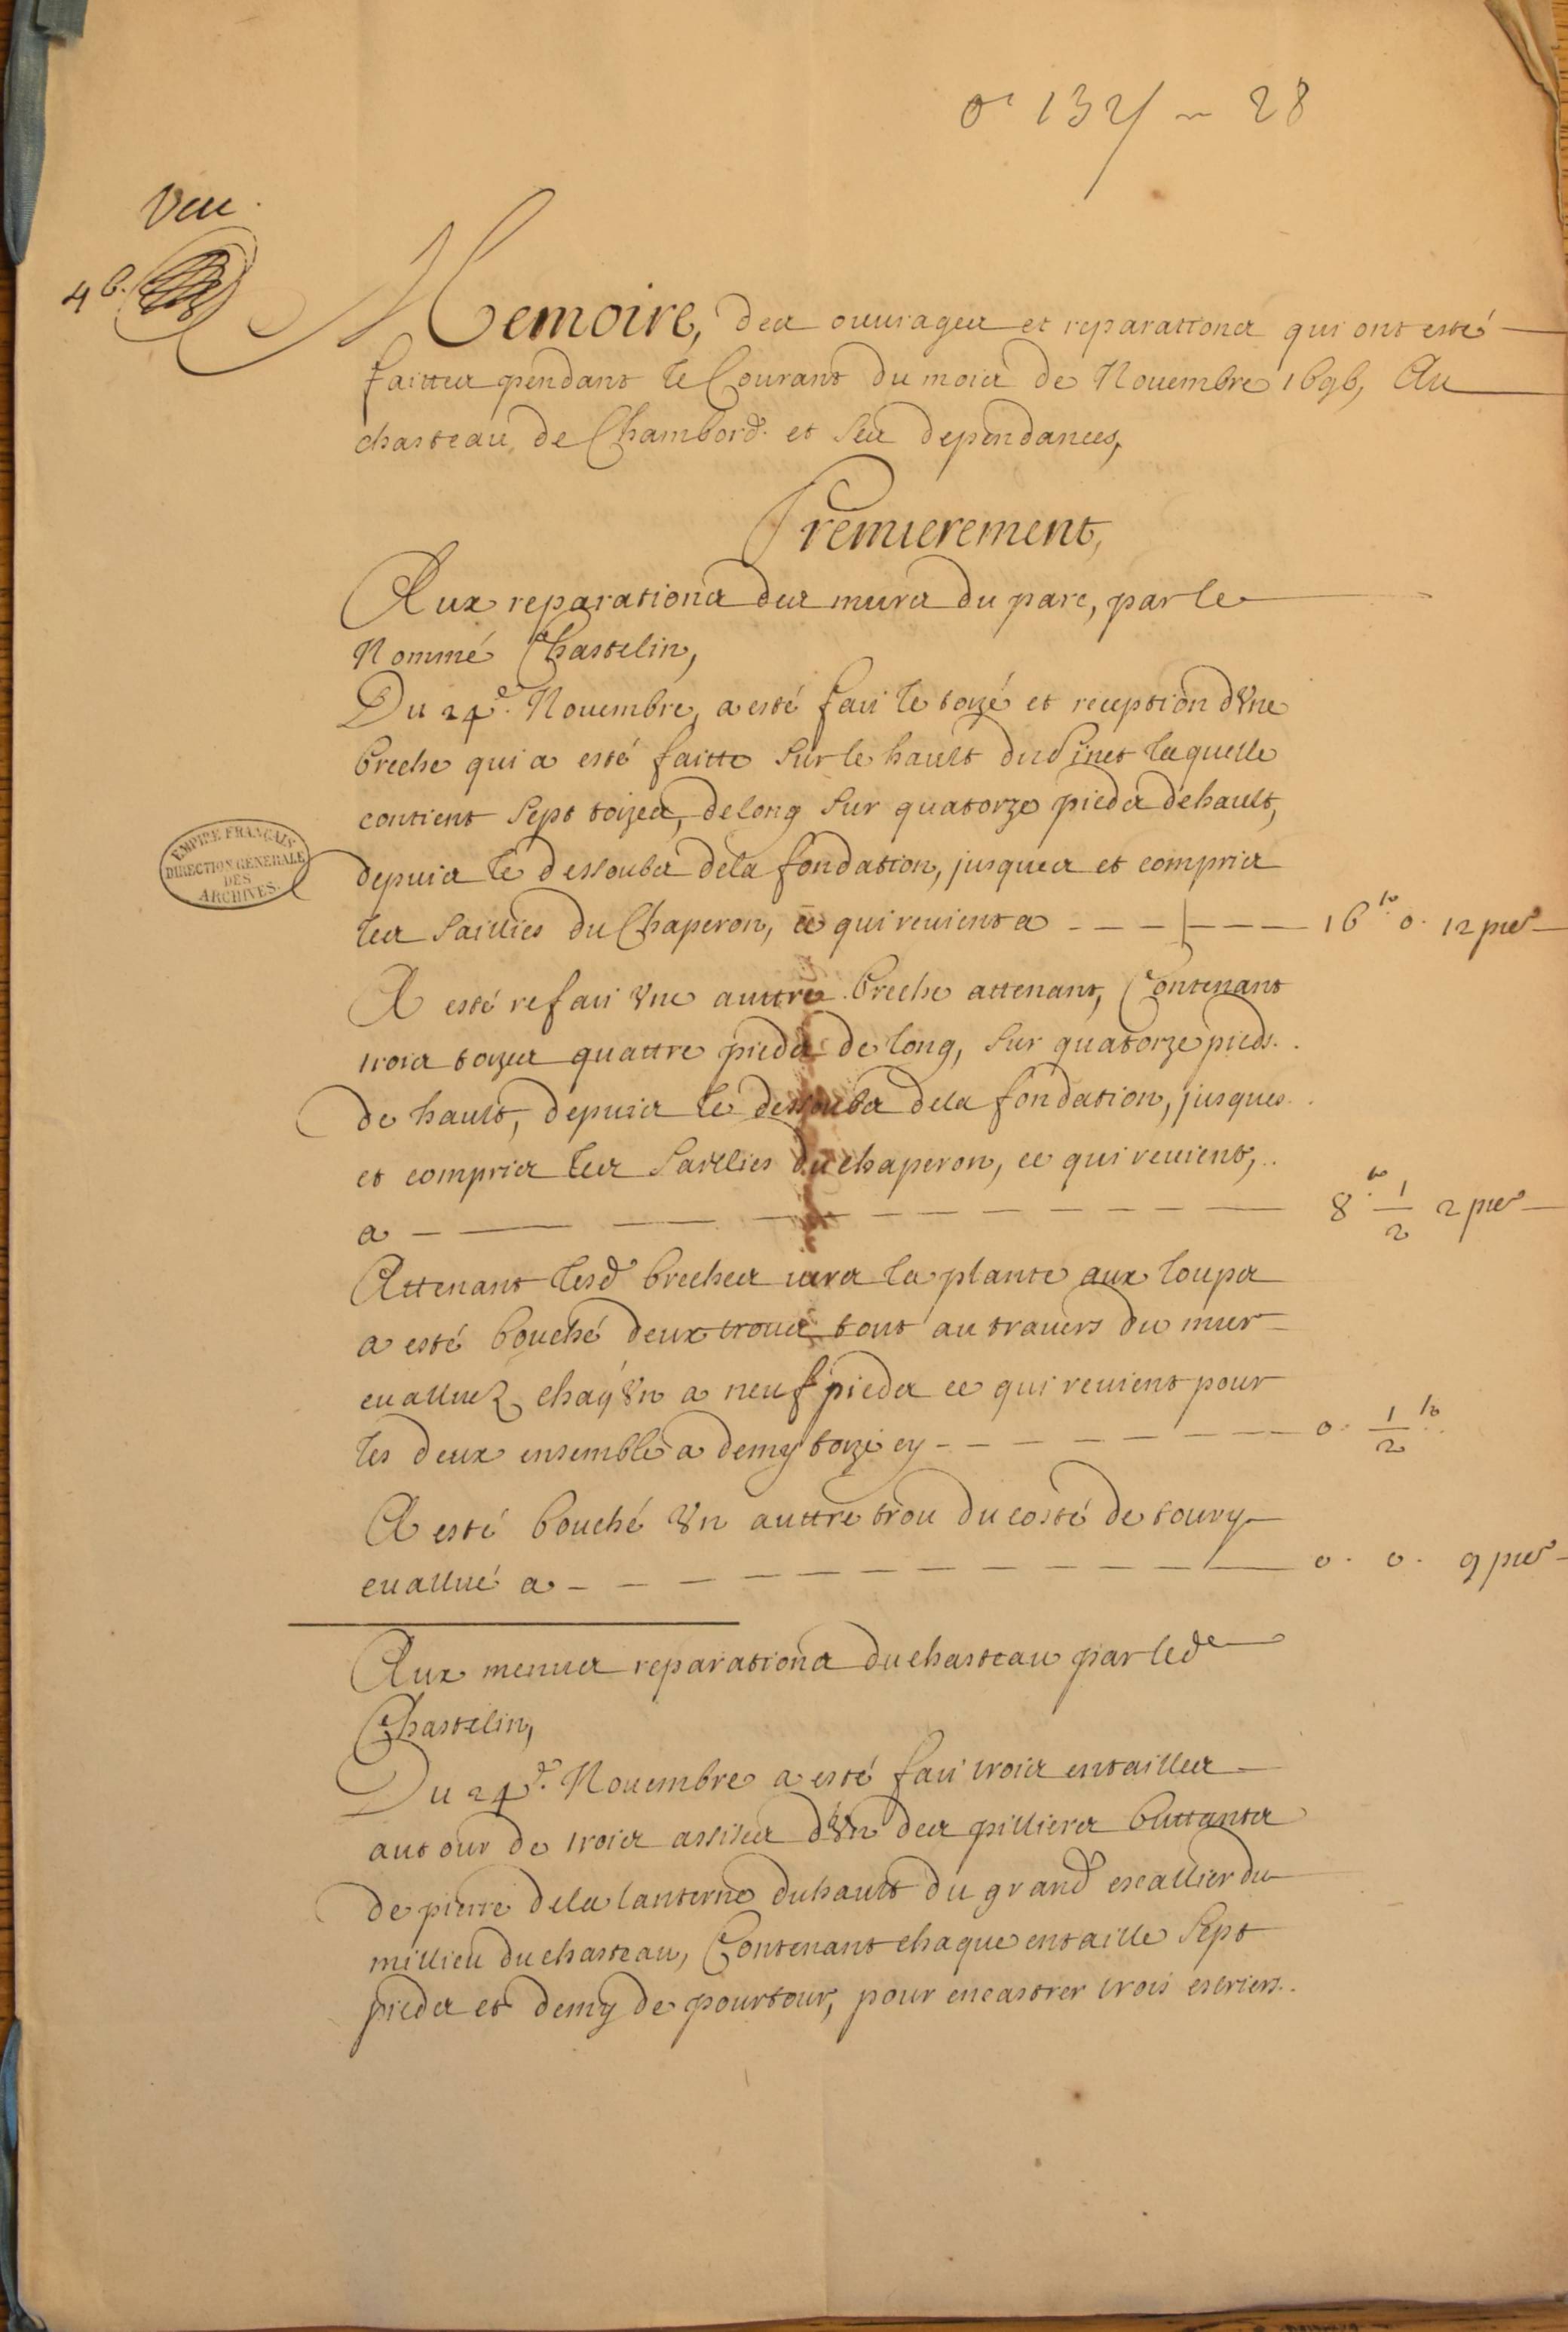 O1 1321 - 28
Veu.
4 b.
Memoire, des ouurages et reparations qui ont esté
faittes pendant le Courant du mois de Nouembre 1696, Au
chasteau de Chambord. et ses dependances,
Premierement,
Aux reparations des murs du parc, par le
Nommé Chastelin,
Du 24e. Nouembre, a esté fait le toizé et reception d'Vne
breche qui a esté faitte sur le hault du Pinet laquelle
contient sept toizes, de long sur quatorze pieds de hault,
depuis le dessoubs de la fondation, jusques et compris
les saillies du Chaperon, ce qui reuient a 16 to. 0. 12 pieds
A esté refait Vne auttre breche attenant, Contenant
trois toizes quattre pieds de long, sur quatorze pieds.
de hault, depuis le dessoubs de la fondation, jusques
et compris les saillies du chaperon, ce qui reuient,
a 8 to. 1/2 2 pieds
Attenant lesd breches vers la plante aux loups
a esté bouché deux trous tout au trauers du mur
eualluez chaq'Vn a neuf pieds ce qui reuient pour
les deux ensemble a demy toize cy 0. 1/2 to
A esté bouché Vn auttre trou du costé de toury
euallué a 0. 0. 9 pieds
EMPIRE FRANÇAIS
DIRECTION GENERALE
DES
ARCHIVES.
Aux menues reparations du chasteau par led
Chastelin,
Du 24e. Nouembre a esté fait trois entailles
autour de trois assises d'Vn des pilliers buttants
de pierre de la lanterne du hault du grand escallier du
millieu du chasteau, Contenant chaque entaille sept
pieds et demy de pourtour, pour encastrer trois estriers.